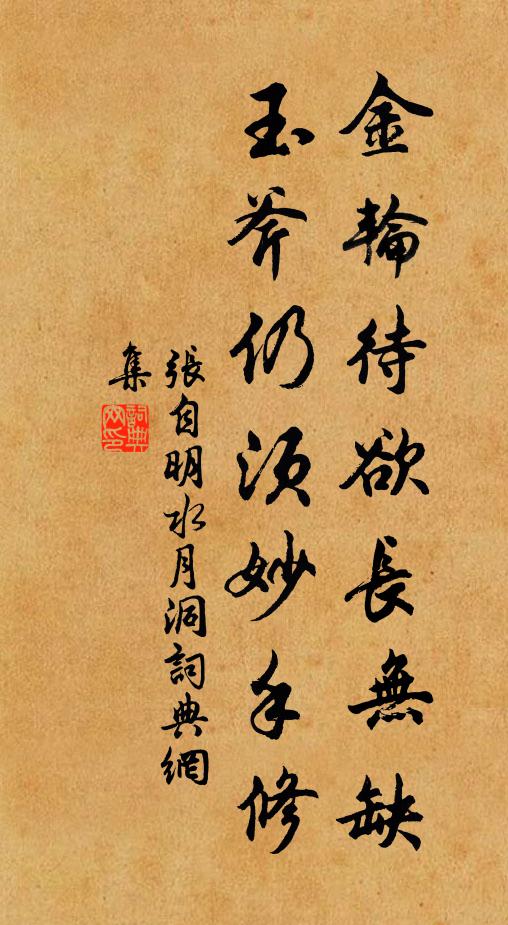 金輪待欲長無缺
玉斧仍須妙手修
張自明水月洞詞典網
集
詞典網印